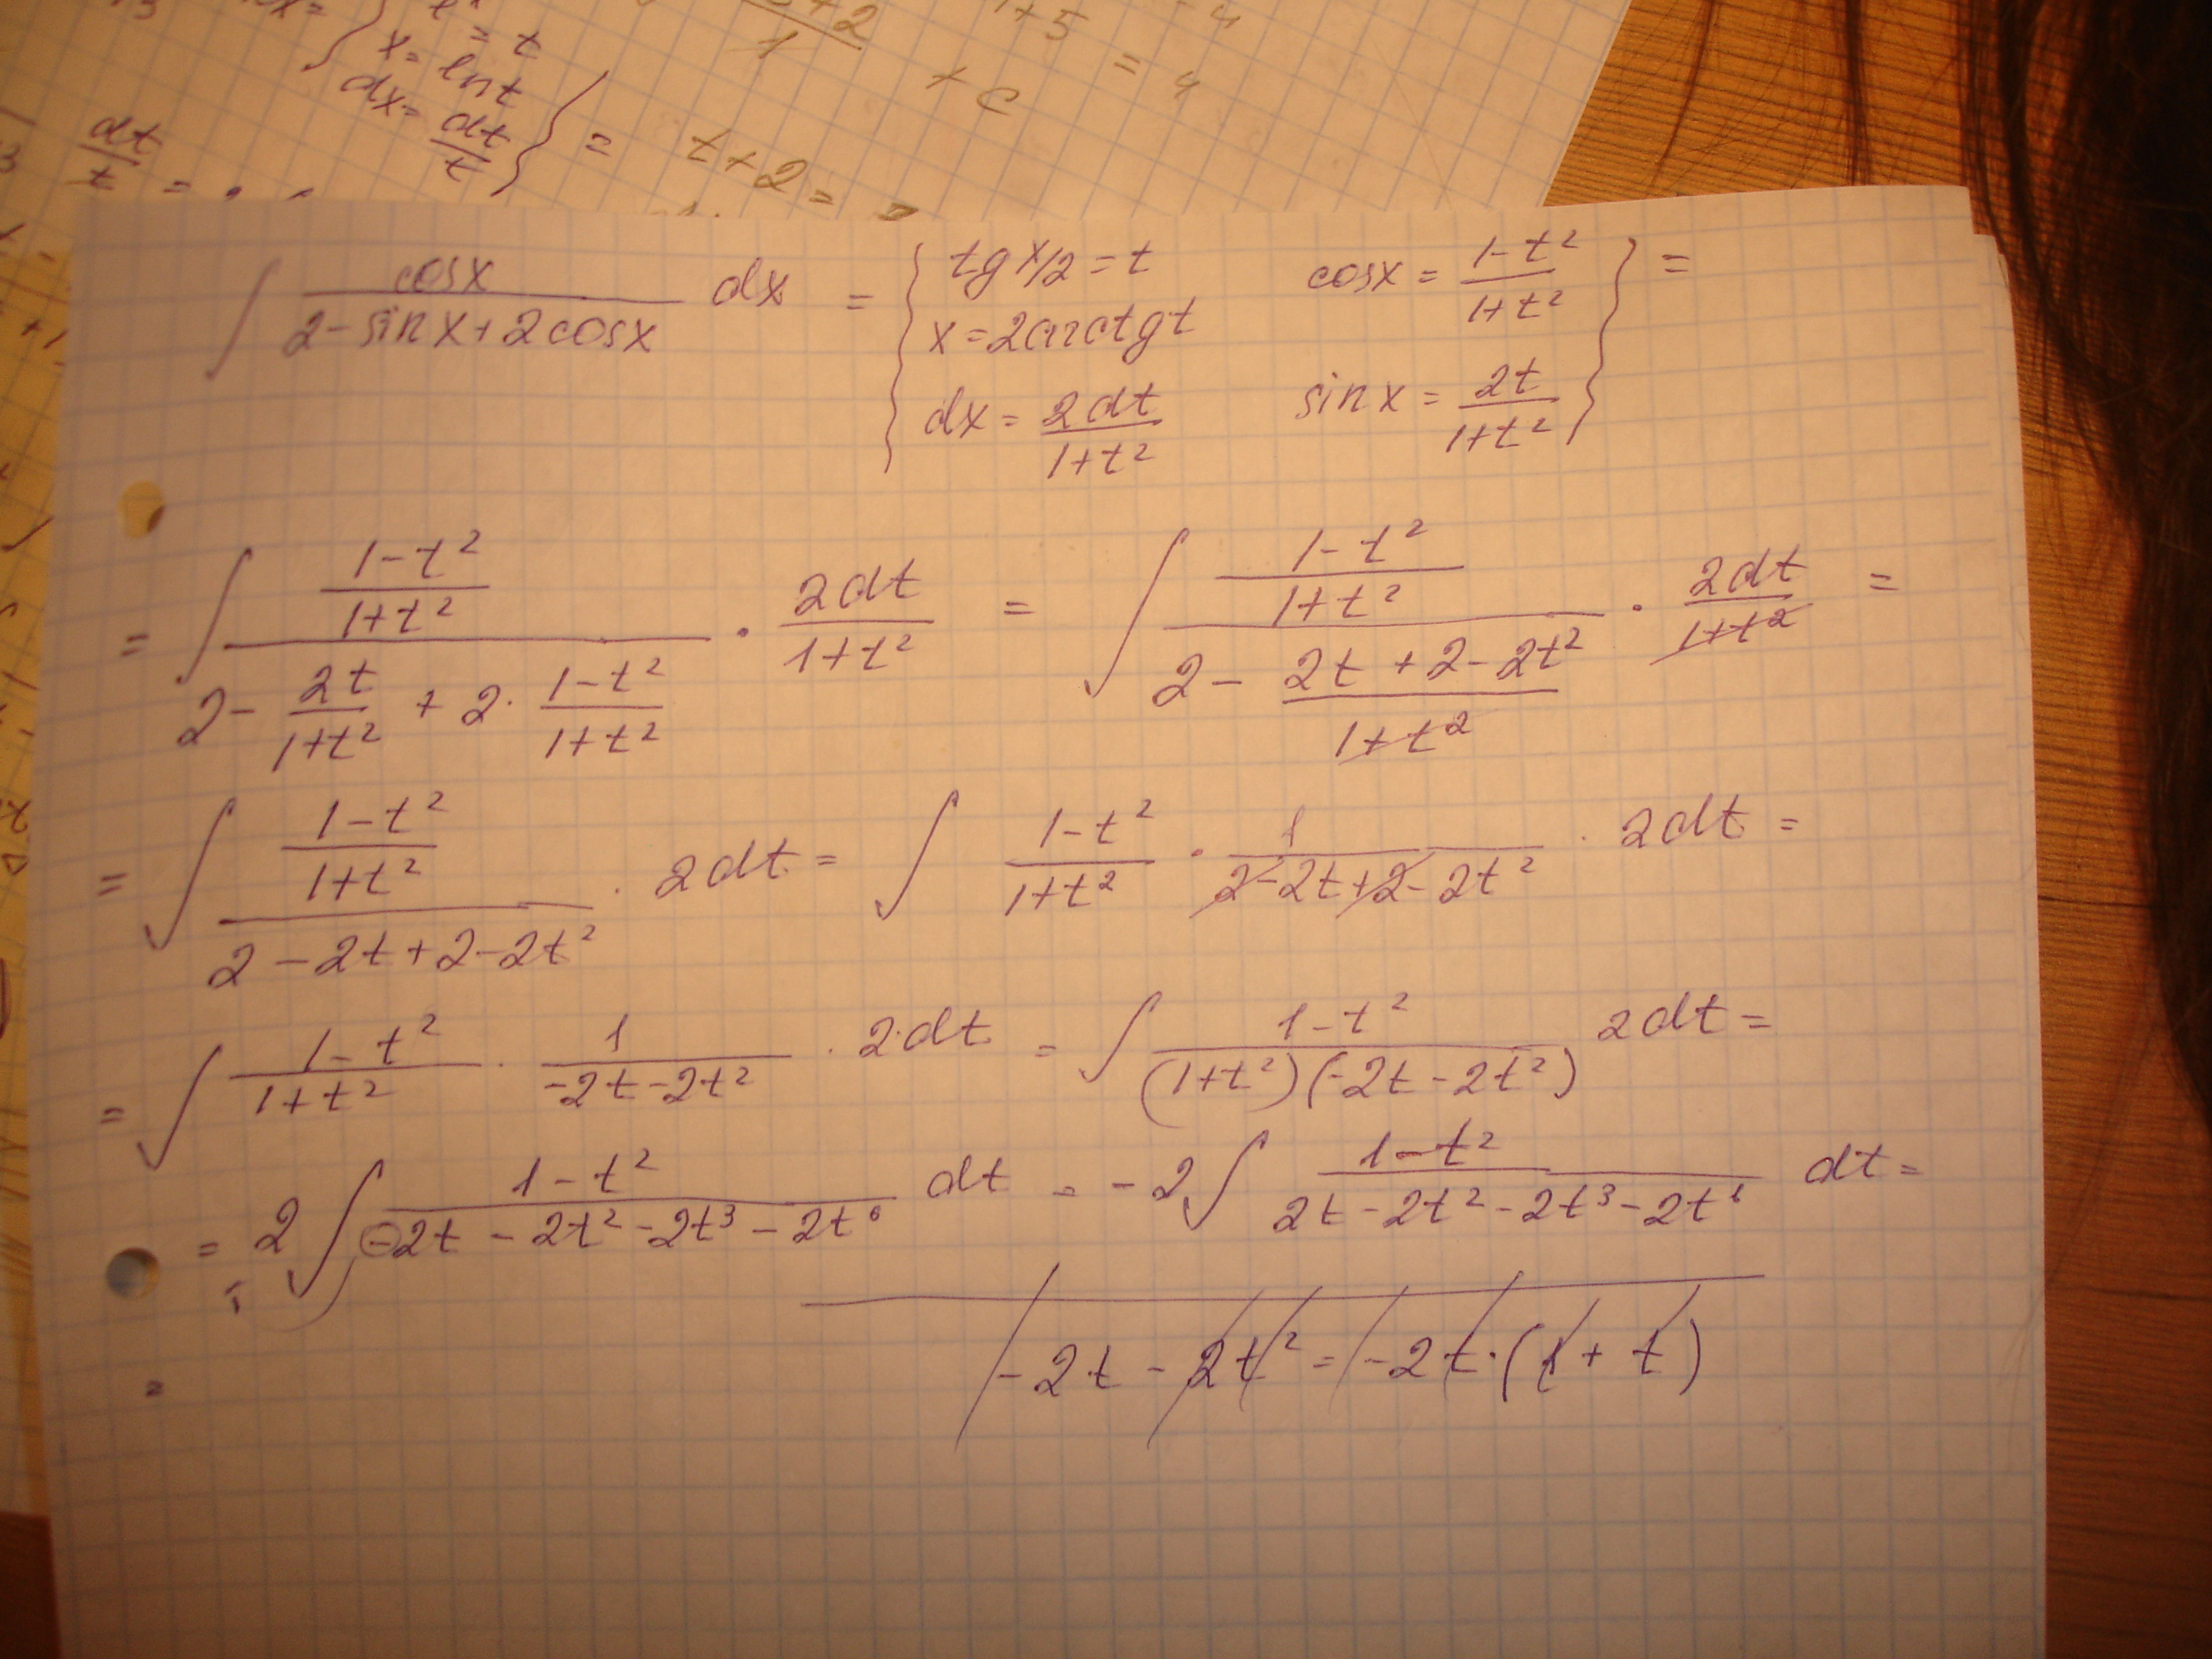 x = t
x = ln t
dx = dt/t } =
dt/t =
t + 2 =
+ C
1 + 5 = 4
∫ cosx/(2 - sinx + 2cosx) dx = { tg x/2 = t cosx = (1-t²)/(1+t²) } =
x = 2arctgt
dx = 2dt/(1+t²) sinx = 2t/(1+t²)
= ∫ ((1-t²)/(1+t²))/(2 - 2t/(1+t²) + 2·(1-t²)/(1+t²)) · 2dt/(1+t²) = ∫ ((1-t²)/(1+t²))/(2 - (2t+2-2t²)/(1+t²)) · 2dt/(1+t²) =
= ∫ ((1-t²)/(1+t²))/(2-2t+2-2t²) · 2dt = ∫ (1-t²)/(1+t²) · 1/(2-2t+2-2t²) · 2dt =
= ∫ (1-t²)/(1+t²) · 1/(-2t-2t²) · 2·dt = ∫ (1-t²)/((1+t²)(-2t-2t²)) 2dt =
= 2 ∫ (1-t²)/(-2t-2t²-2t³-2t⁶) dt = -2 ∫ (1-t²)/(2t-2t²-2t³-2t⁶) dt =
-2t-2t² = -2t·(1+t)
=